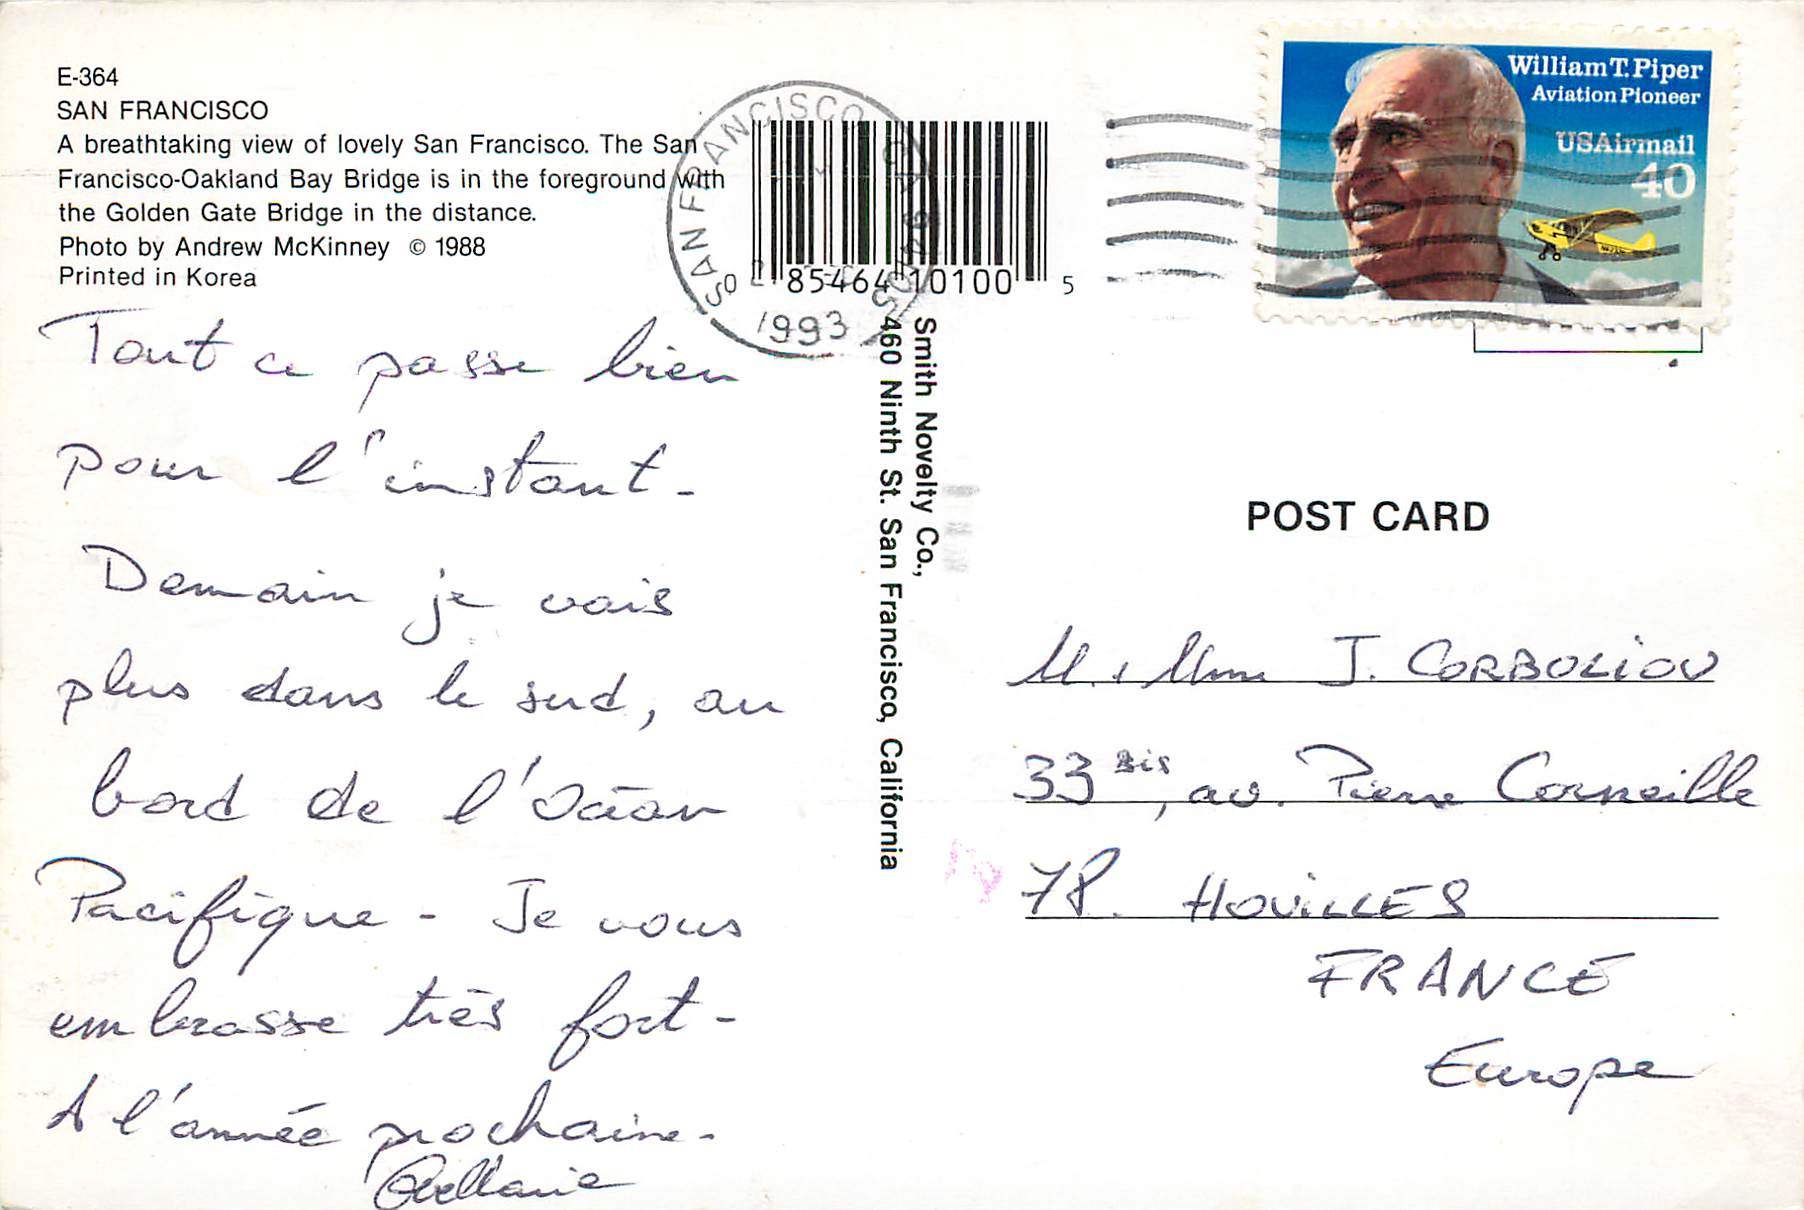 E-364
SAN FRANCISCO
A breathtaking view of lovely San Francisco. The San
Francisco-Oakland Bay Bridge is in the foreground with
the Golden Gate Bridge in the distance.
Photo by Andrew McKinney © 1988
Printed in Korea
Tout ce passe bien
pour l'instant -
Demain je vais
plus dans le sud, au
bord de l'Océan
Pacifique - Je vous
embrasse très fort -
A l'année prochaine -
SAN FRANCISCO CA
1993
0 85464 10100 5
Smith Novelty Co.,
460 Ninth St. San Francisco, California
William T. Piper
Aviation Pioneer
USAirmail
40
POST CARD
M. + Mme J. CORBOLIOU
33 bis, av. Pierre Corneille
78. HOUILLES
FRANCE
Europe